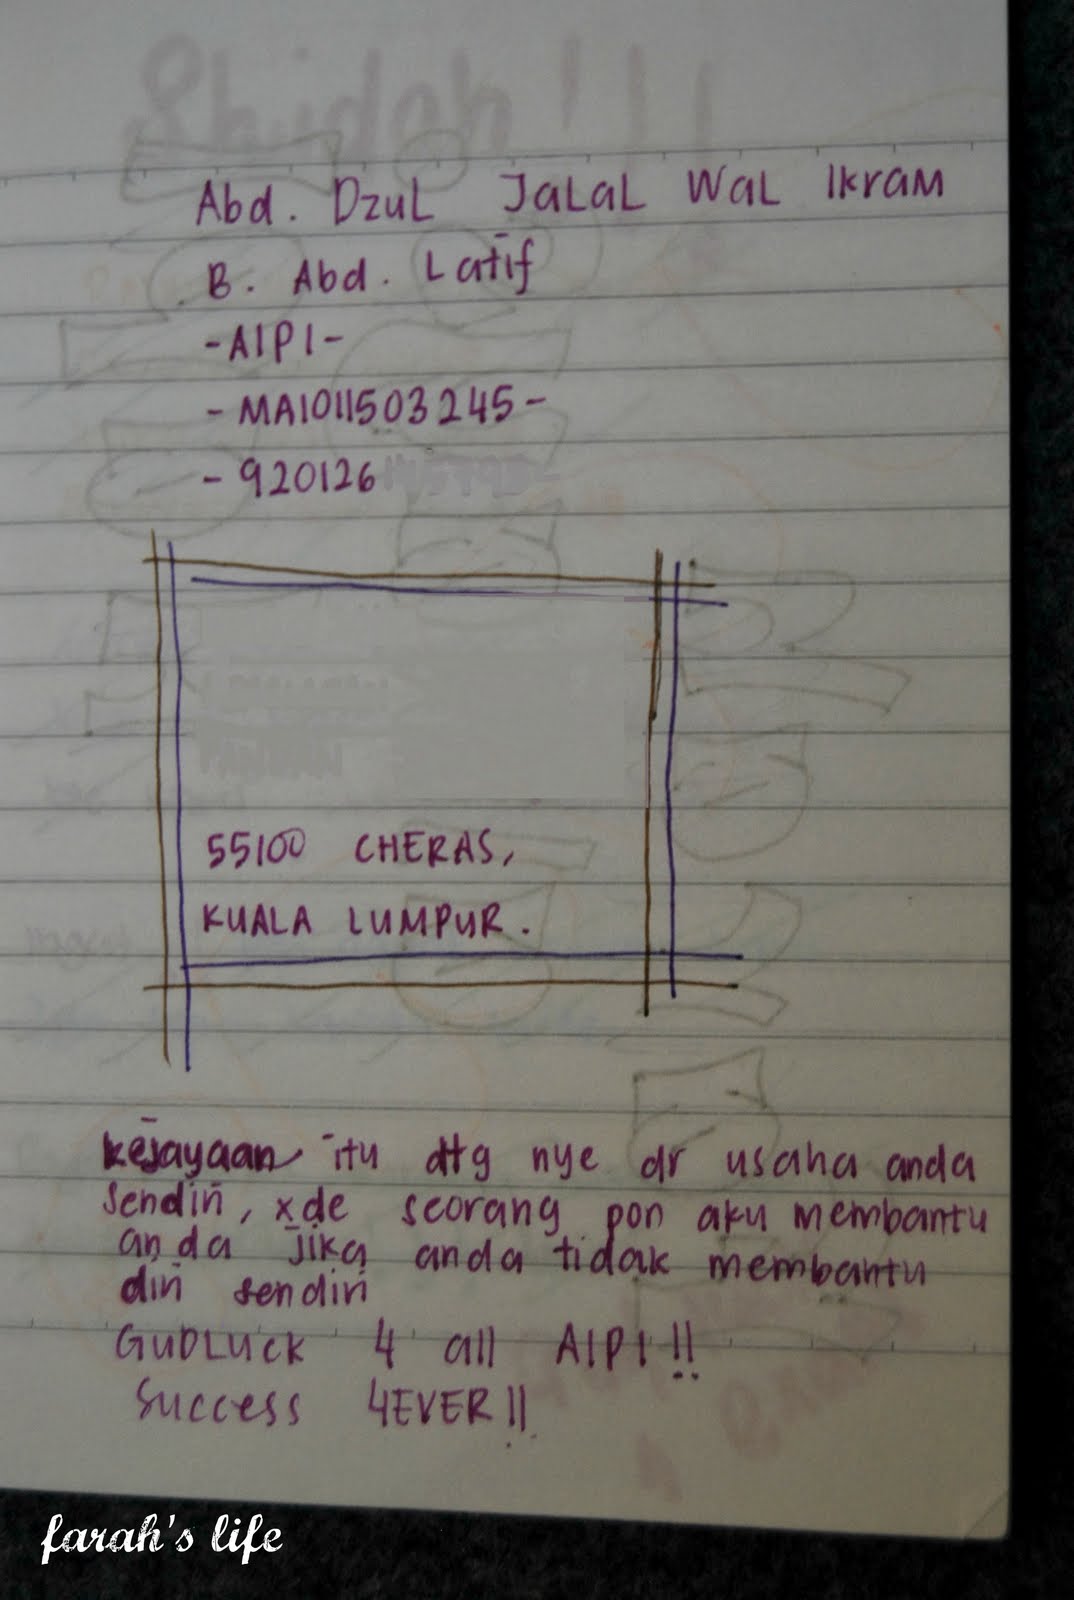 Shidah!!!
Abd. Dzul Jalal Wal Ikram
B. Abd. Latif
-AIPI-
-MA1011503245-
-920126
55100 CHERAS,
KUALA LUMPUR.
kejayaan itu dtg nye dr usaha anda
sendiri, xde seorang pon aku membantu
anda jika anda tidak membantu
diri sendiri
GUDLUCK 4 all AIPI!!
Success 4EVER!!
farah's life